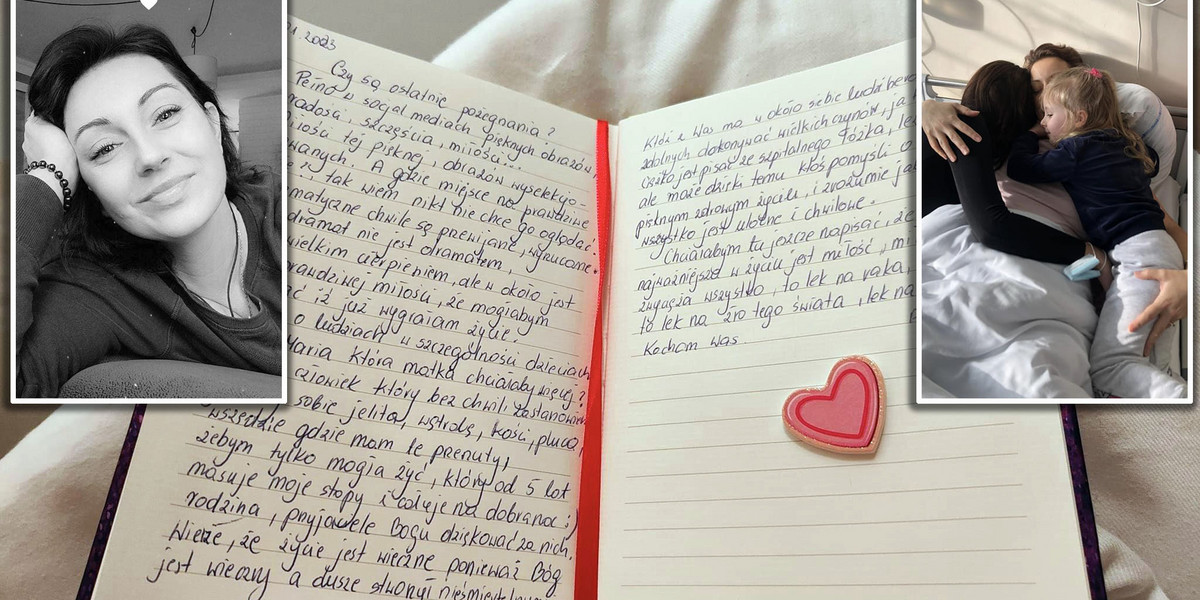 1. 2023
Czy są ostatnie pożegnania?
Pełno w social mediach pięknych obrazów,
radości, szczęścia, miłości...
miłości tej pięknej, obrazów wyselekcjo-
wanych. A gdzie miejsce na prawdziwe
tak wiem nikt nie chce go oglądać.
matyczne chwile są przewijane, wyrzucane.
dramat nie jest dramatem,
wielkim cierpieniem, ale w około jest
prawdziwej miłości, że mogłabym
ć iż już wygrałam życie.
o ludziach w szczególności dzieciach
Maria która matka chciałaby więcej?
człowiek który bez chwili zastanowienia
sobie jelita, wątrobę, kości, płuca,
wszędzie gdzie mam te przerzuty,
żebym tylko mogła żyć, który od 5 lat
masuje moje stopy i całuje na dobranoc :)
rodzina, przyjaciele Bogu dziękować za nich.
Wierzę, że życie jest wieczne ponieważ Bóg
jest wieczny a dusze stworzył nieśmiertelnymi
Któż z Was ma w około siebie ludzi
zdolnych dokonywać wielkich czynów, ja
Ciężko jest pisać ze szpitalnego łóżka, le
ale może dzięki temu ktoś pomyśli o
pięknym zdrowym życiu, i zrozumie jak
wszystko jest ulotne i chwilowe.
Chciałabym tu jeszcze napisać, że
najważniejsza w życiu jest miłość, mi
zwycięża wszystko, to lek na raka,
to lek na zło tego świata, lek na
Kocham Was.